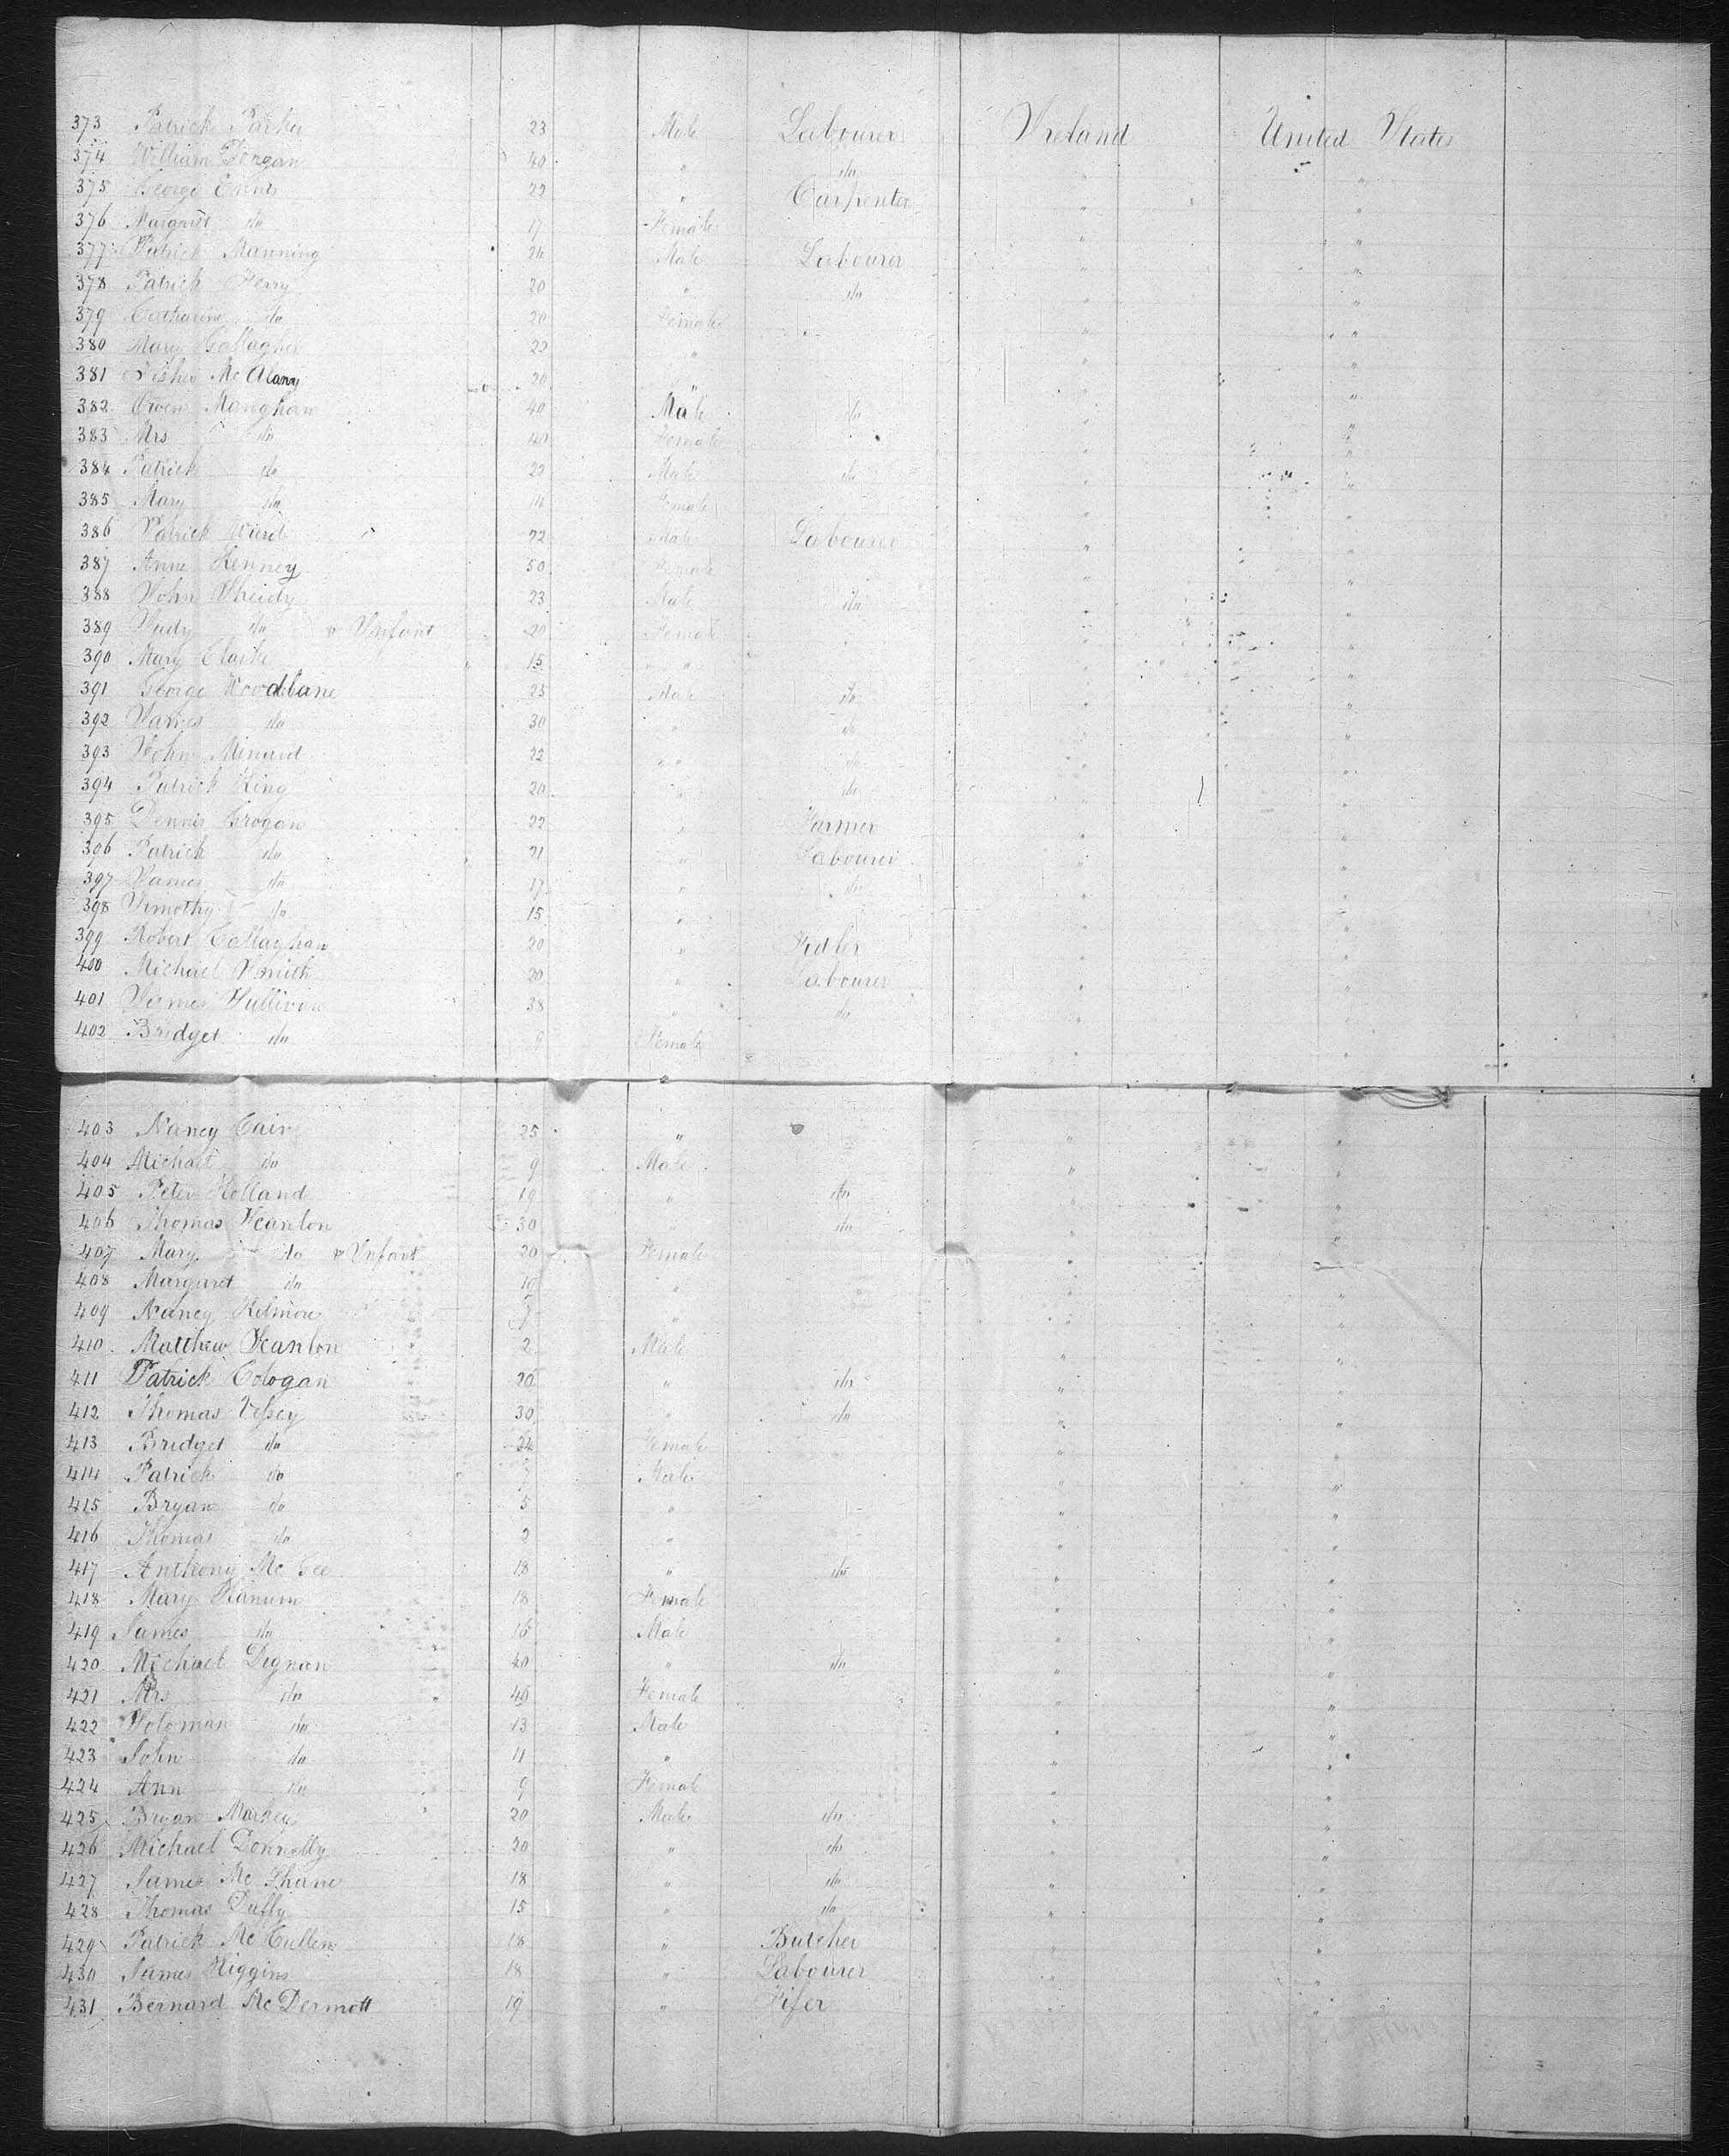 373 Patrick Parker 23 Male Labourer Ireland United States
374 William Dorgan 40 " do " "
375 George Ennis 22 " Carpenter " "
376 Margaret do 17 Female " "
377 Patrick Manning 24 Male Labourer " "
378 Patrick Perry 20 " do " "
379 Catharine do 20 Female " "
380 Mary Gallagher 22 " " "
381 Mc Alany 20 " " "
382 Owen Manghan 40 Male do " "
383 Mrs do 40 Female " "
384 Patrick do 22 Male do " "
385 Mary do 14 Female " "
386 Patrick Ward 22 Male Labourer " "
387 Anne Kenney 50 Female " "
388 John Sheidy 23 Male do " "
389 Judy do & Infant 20 Female " "
390 Mary Clarke 15 " " "
391 George Woodlane 25 Male do " "
392 James do 30 " do " "
393 John Minard 22 " do " "
394 Patrick King 20 " do " "
395 Dennis Grogan 22 " Farmer " "
396 Patrick do 21 " Labourer " "
397 James do 17 " do " "
398 Timothy do 15 " " "
399 Robert Callaghan 20 " Fidler " "
400 Michael Smith 20 " Labourer " "
401 James Sullivan 38 " do " "
402 Bridget do 9 Female " "
403 Nancy Cair 25 " " "
404 Michael do 9 Male " "
405 Peter Holland 19 " do " "
406 Thomas Scanlon 30 " do " "
407 Mary do & Infant 20 Female " "
408 Margaret do " " "
409 Nancy Kilmore " " "
410 Matthew Scanlon 2 Male " "
411 Patrick Cologan 20 " do " "
412 Thomas Vessey 30 " do " "
413 Bridget do 24 Female " "
414 Patrick do 7 Male " "
415 Bryan do 5 " " "
416 Thomas do 2 " " "
417 Anthony Mc Gee 18 " do " "
418 Mary Hanum 18 Female " "
419 James do 16 Male " "
420 Michael Dignan 40 " do " "
421 Mrs do 40 Female " "
422 Soloman do 13 Male " "
423 John do 11 " " "
424 Ann do 9 Female " "
425 Bryan Markey 20 Male do " "
426 Michael Donnelly 20 " do " "
427 James Mc Shane 18 " do " "
428 Thomas Duffy 15 " do " "
429 Patrick Mc Cullen 18 " Butcher " "
430 James Higgins 18 " Labourer " "
431 Bernard Mc Dermott 19 " Fifer " "